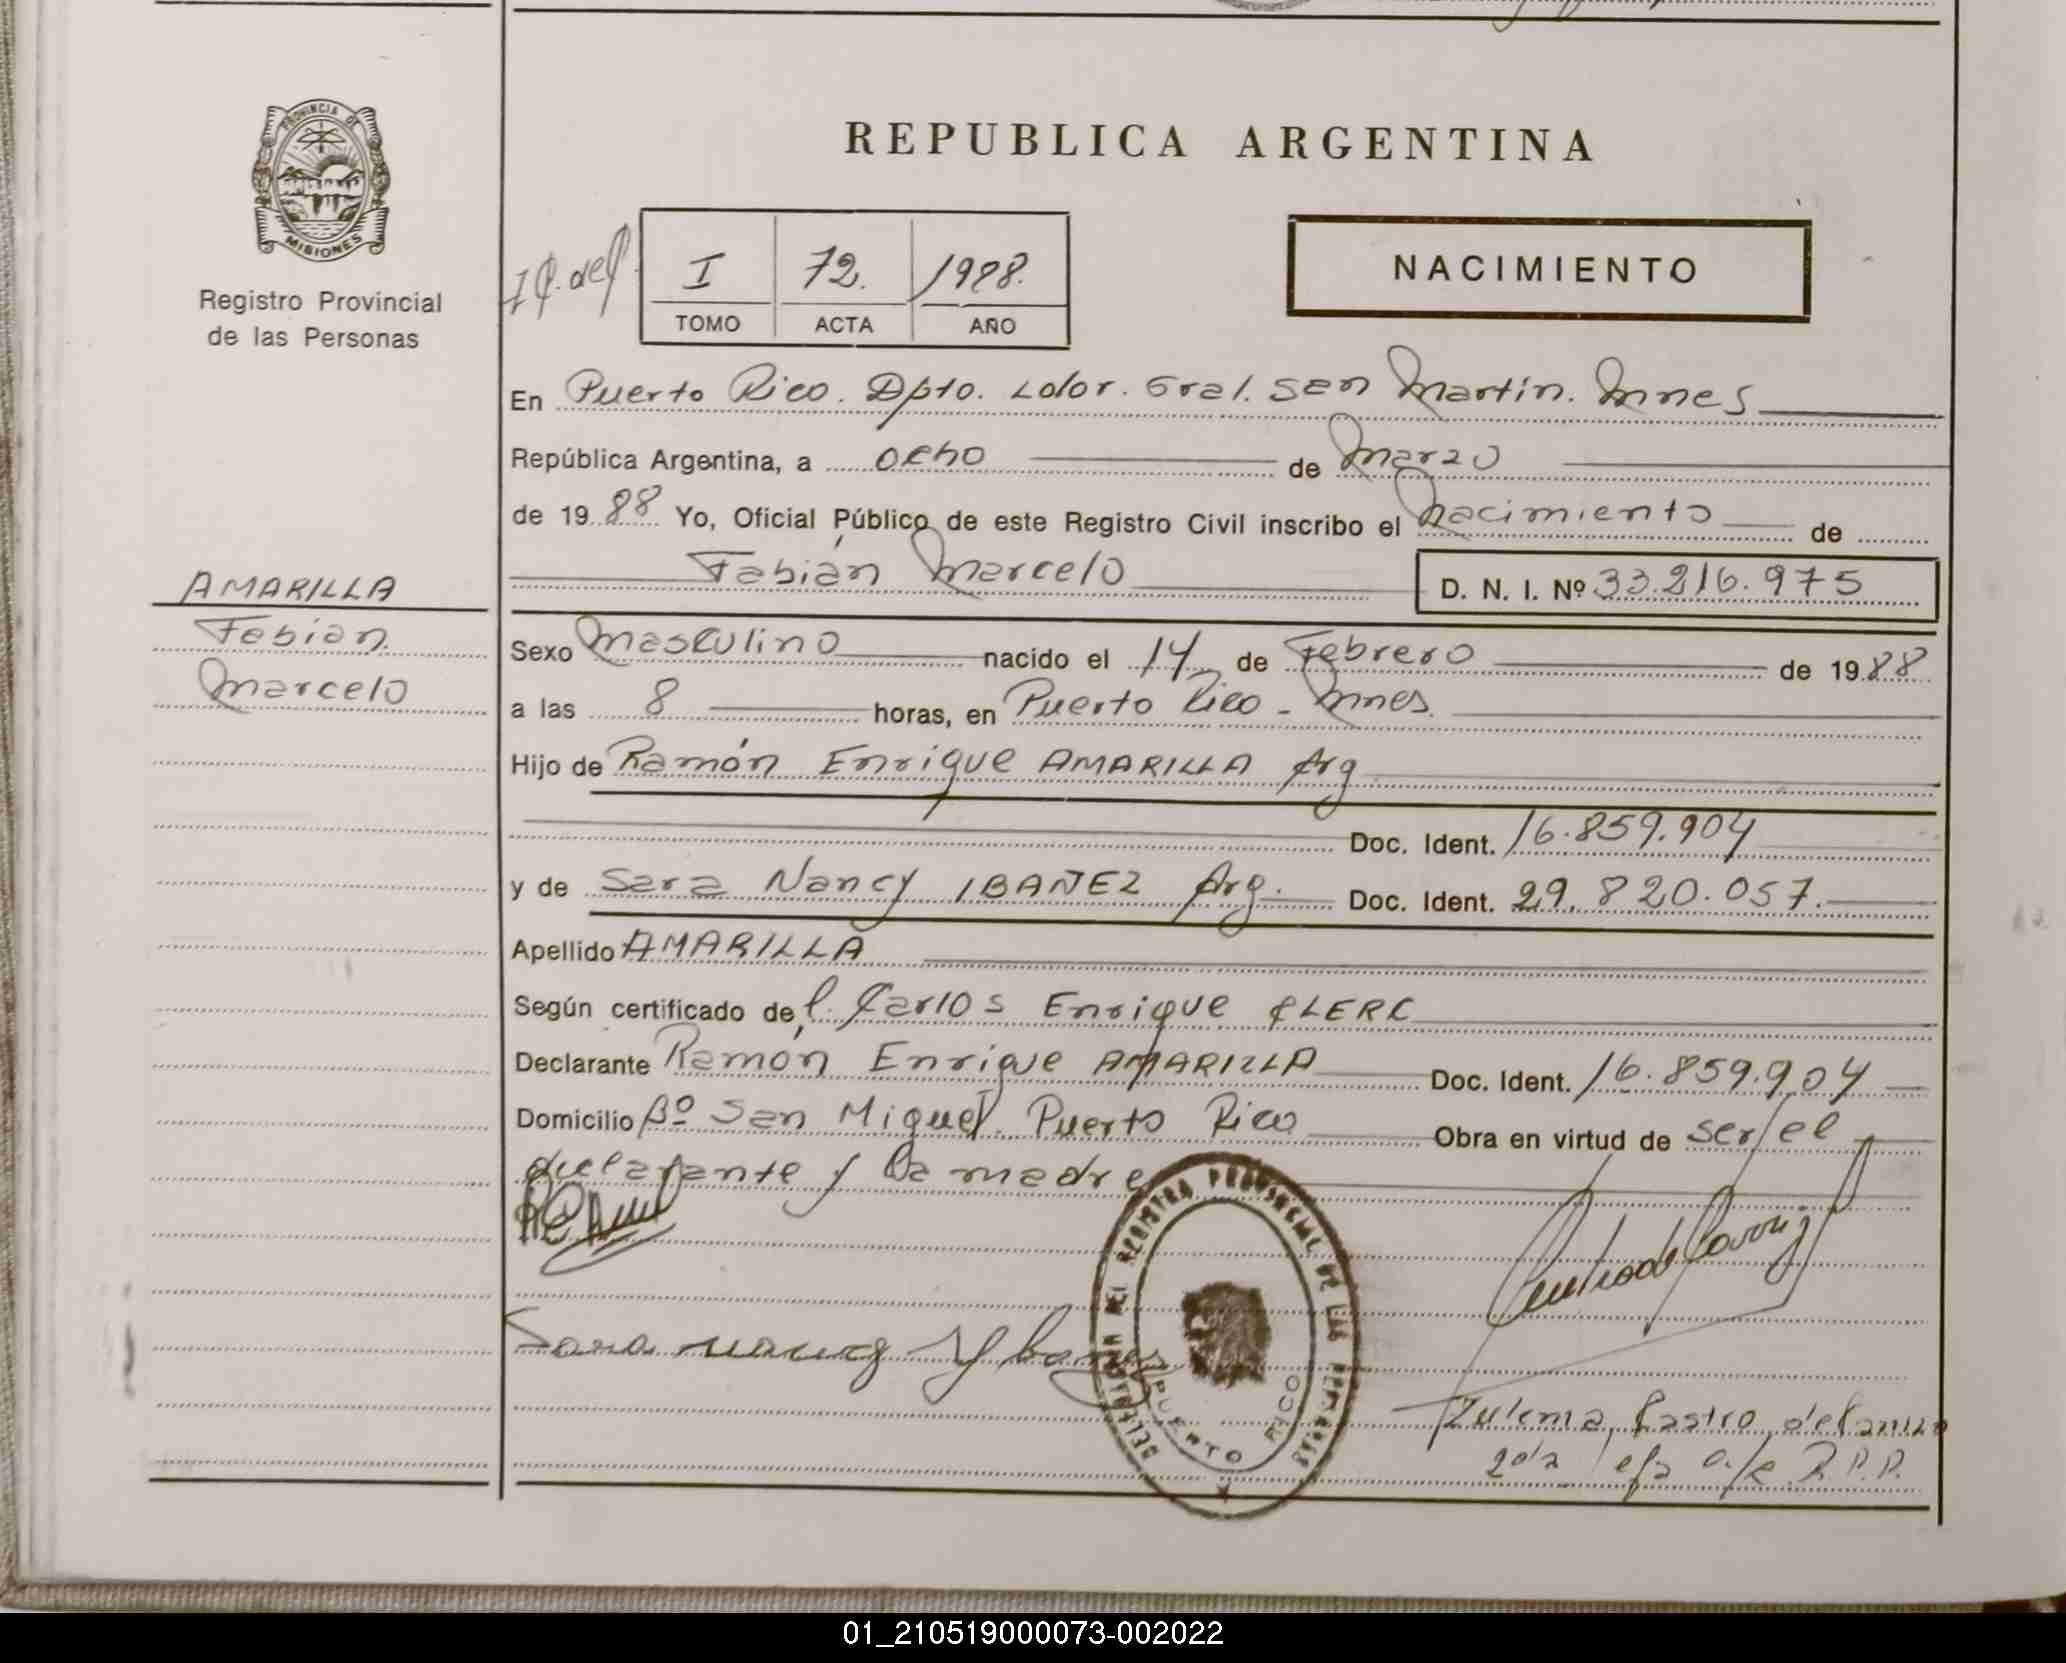 PROVINCIA DE
MISIONES
Registro Provincial
de las Personas
REPUBLICA ARGENTINA
I 72. 1988.
TOMO ACTA AÑO
NACIMIENTO
En Puerto Rico. Dpto. Ldor. Gral. San Martín. Mnes
República Argentina, a ocho de Marzo
de 1988 Yo, Oficial Público de este Registro Civil inscribo el Nacimiento de
Fabián Marcelo D. N. I. Nº 33.216.975
AMARILLA
Fabián
Marcelo
Sexo Masculino nacido el 14 de Febrero de 1988
a las 8 horas, en Puerto Rico - Mnes.
Hijo de Ramón Enrique AMARILLA Arg
Doc. Ident. 16.859.904
y de Sara Nancy IBAÑEZ Arg. Doc. Ident. 29.820.057.
Apellido AMARILLA
Según certificado del. Carlos Enrique CLERC
Declarante Ramón Enrique AMARILLA Doc. Ident. 16.859.904
Domicilio Bº San Miguel. Puerto Rico Obra en virtud de ser el
declarante y la madre
Sara Nancy Ybañez
DELEGACION DEL REGISTRO PROVINCIAL DE LAS PERSONAS
PUERTO RICO
Zulema Castro de
2da Jefa a/c R.P.P.
01_210519000073-002022